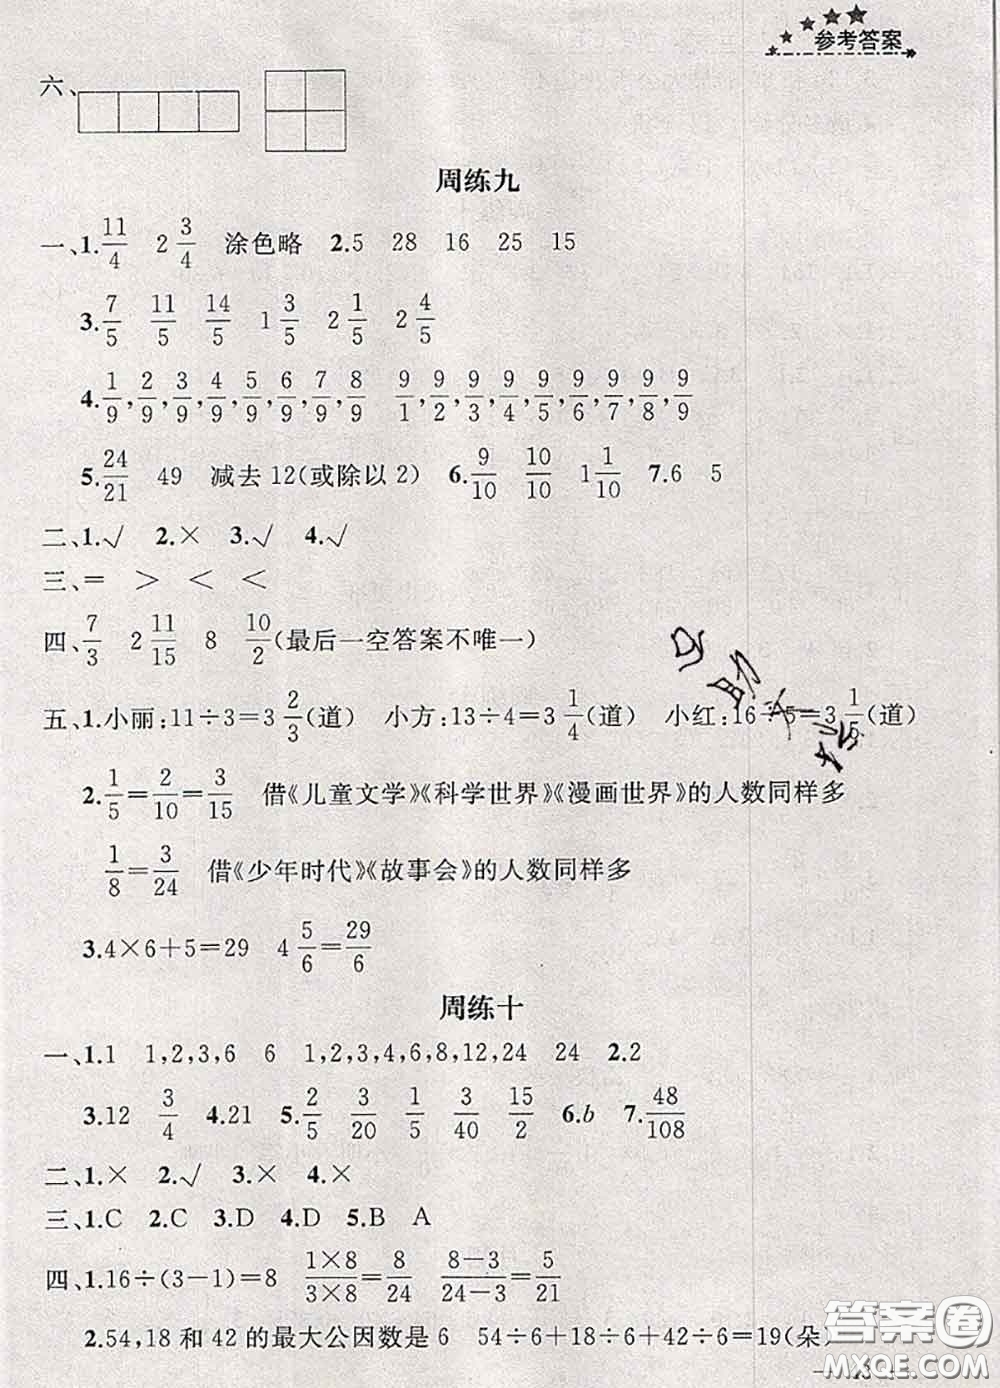 参考答案
六、
周练九
一、1. 11/4 2 3/4 涂色略 2.5 28 16 25 15
3. 7/5 11/5 14/5 1 3/5 2 1/5 2 4/5
4. 1/9, 2/9, 3/9, 4/9, 5/9, 6/9, 7/9, 8/9 9/1, 9/2, 9/3, 9/4, 9/5, 9/6, 9/7, 9/8, 9/9
5. 24/21 49 减去12(或除以2) 6. 9/10 10/10 1 1/10 7.6 5
二、1.√ 2.× 3.√ 4.√
三、= > < <
四、7/3 2 11/15 8 10/2(最后一空答案不唯一)
五、1.小丽:11÷3=3 2/3(道) 小方:13÷4=3 1/4(道) 小红:16÷5=3 1/5(道)
2. 1/5=2/10=3/15 借《儿童文学》《科学世界》《漫画世界》的人数同样多
1/8=3/24 借《少年时代》《故事会》的人数同样多
3.4×6+5=29 4 5/6=29/6
周练十
一、1.1 1,2,3,6 6 1,2,3,4,6,8,12,24 24 2.2
3.12 3/4 4.21 5. 2/5 3/20 1/5 3/40 15/2 6.b 7. 48/108
二、1.× 2.√ 3.× 4.×
三、1.C 2.C 3.D 4.D 5.B A
四、1.16÷(3-1)=8 1×8/3×8=8/24 8-3/24-3=5/21
2.54,18和42的最大公因数是6 54÷6+18÷6+42÷6=19(朵)
答案圈
MXQE.COM